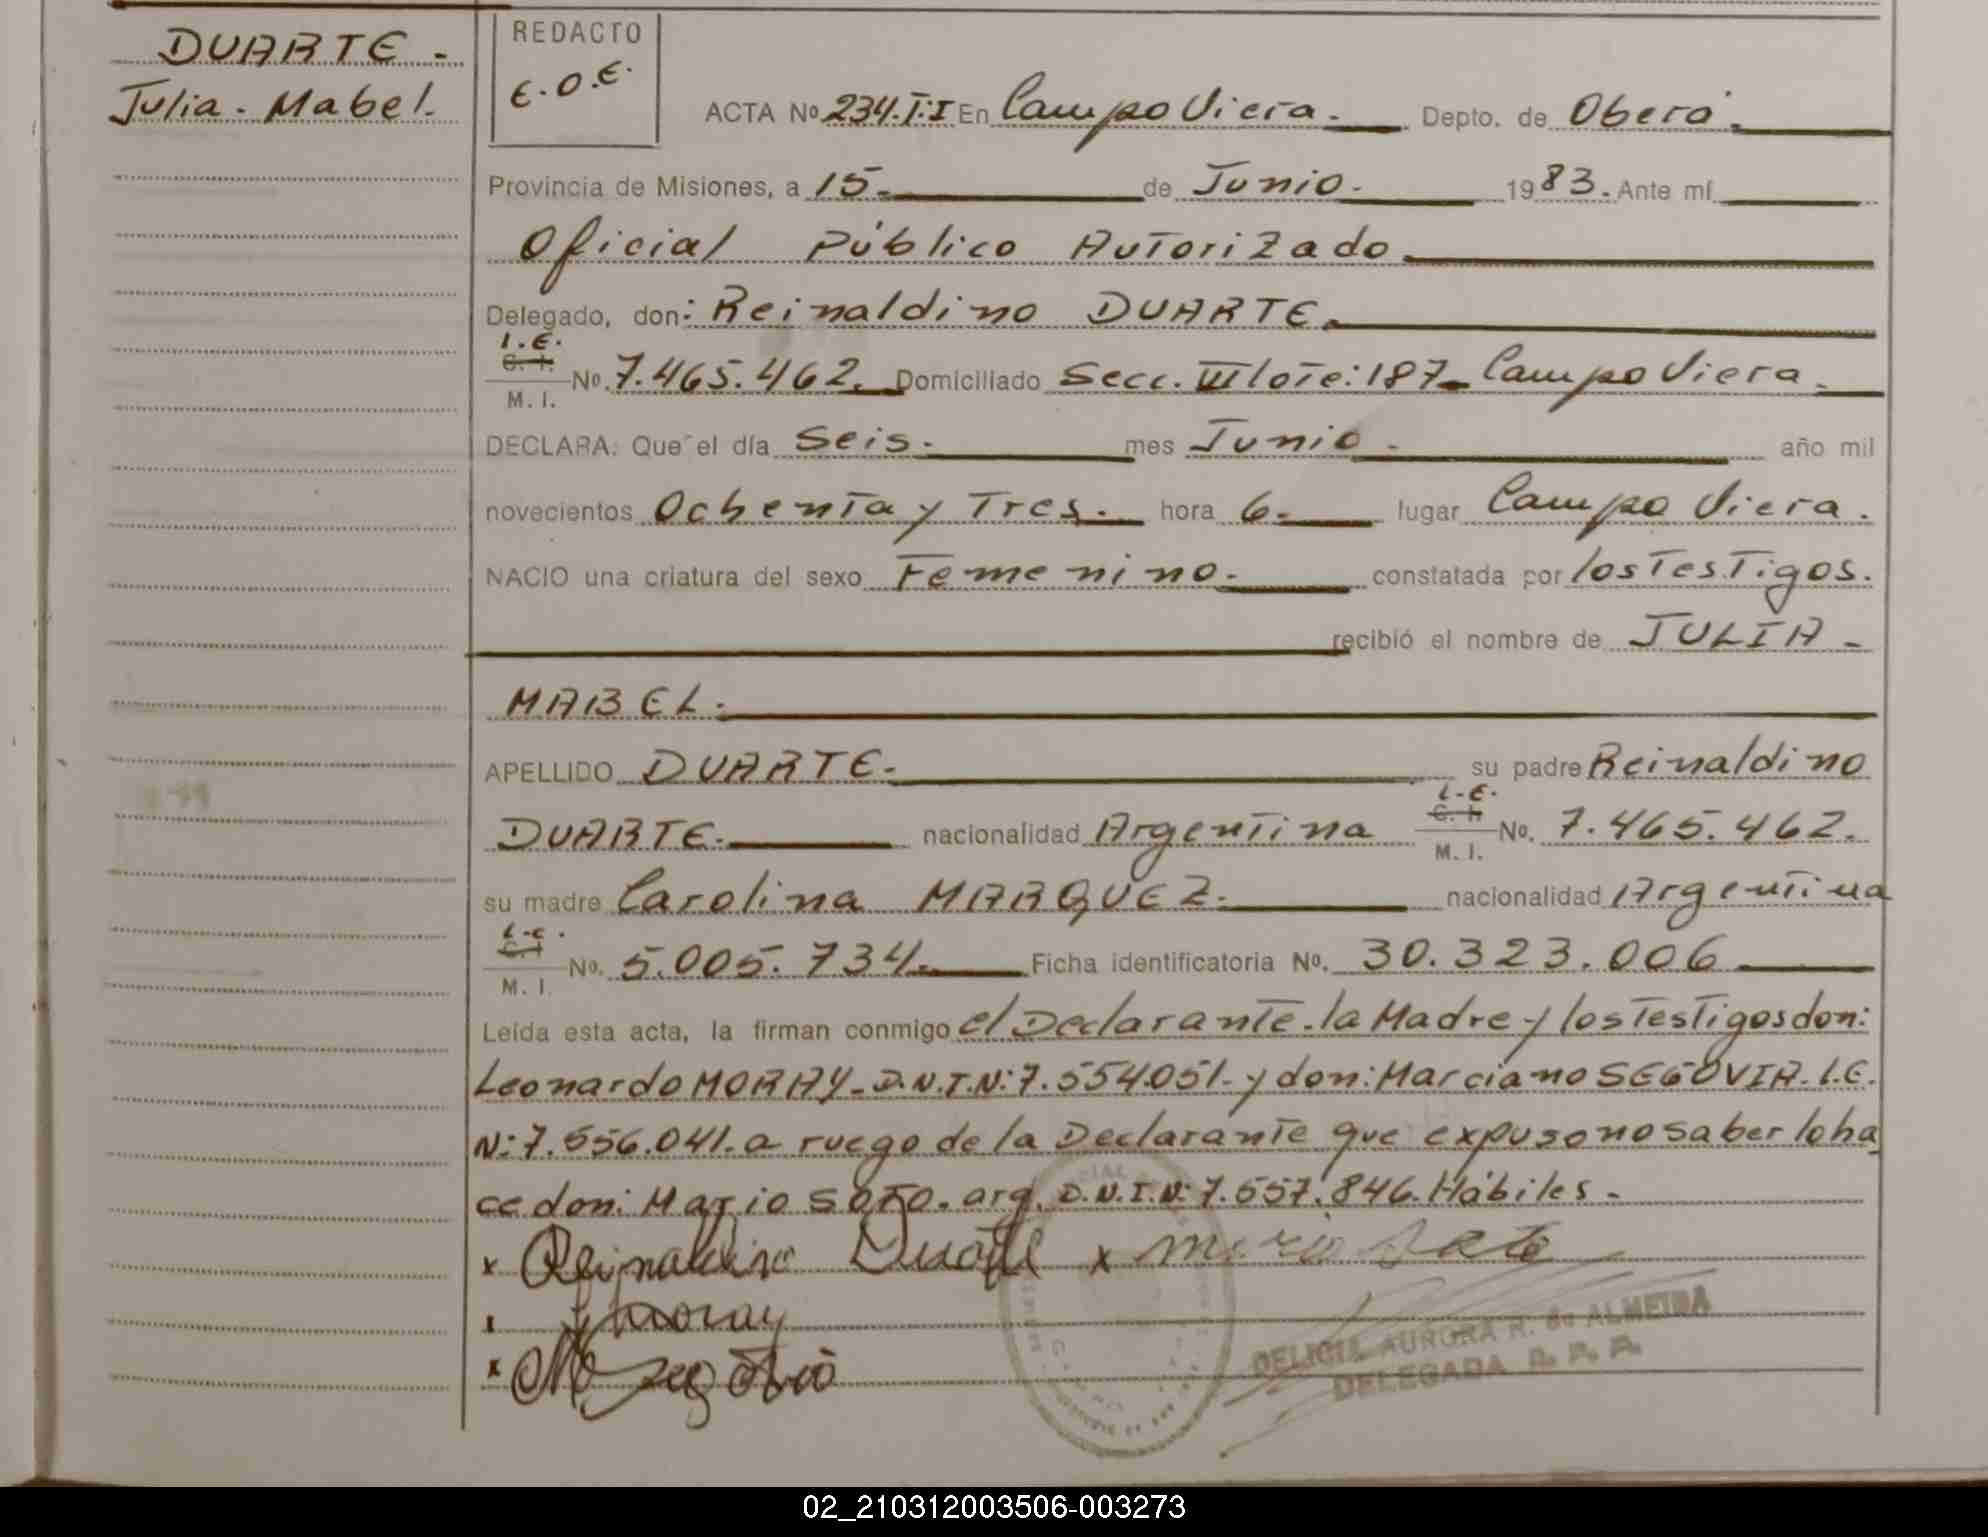 DUARTE.-
Julia. Mabel.
REDACTO
E.O.E.
ACTA Nº 234.T:I En Campo Viera.- Depto. de Oberá.-
Provincia de Misiones, a 15.- de Junio.- 1983. Ante mí
Oficial Público Autorizado.
Delegado, don: Reinaldino DUARTE.
L.E.
C. I.
M. I.
Nº. 7.465.462. Domiciliado Secc. VII lote: 187- Campo Viera.-
DECLARA: Que el día Seis.- mes Junio.- año mil
novecientos Ochenta y Tres.- hora 6.- lugar Campo Viera.
NACIO una criatura del sexo Femenino.- constatada por los Testigos.
recibió el nombre de JULIA-
MABEL.-
APELLIDO DUARTE.- su padre Reinaldino
L.E.
C. I.
M. I.
DUARTE.- nacionalidad Argentina Nº. 7.465.462.
su madre Carolina MARQUEZ.- nacionalidad Argentina
L.C.
C.I
M. I.
Nº. 5.005.734.- Ficha identificatoria Nº. 30.323.006
Leída esta acta, la firman conmigo el Declarante. la Madre y los Testigos don:
Leonardo MORAY- D.N.I.N: 7.554.051.- y don: Marciano SEGOVIA- L.E.
N: 7.556.041. a ruego de la Declarante que expuso no saber lo ha
ce don: Mario SOTO. arg. D.N.I.N: 7.557.846. Hábiles.-
x Reinaldino Duarte x Mario Soto
Moray
x M Segovia
DELICIA AURORA R. de ALMEIDA
DELEGADA R. P. P.
02_210312003506-003273